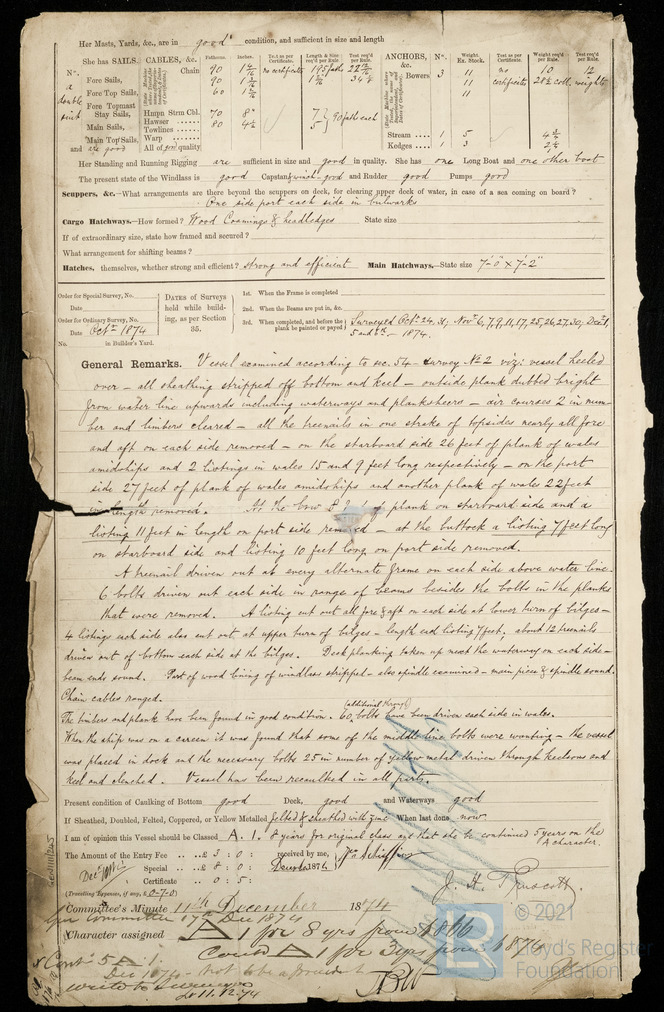 Her Masts, Yards, &c., are in good condition, and sufficient in size and length
She has SAILS.
CABLES, &c.
Fathoms.
Inches.
Test as per Certificate.
Length & Size req'd per Rule.
Test req'd per Rule.
ANCHORS, &c.
Nos.
Weight. Ex. Stock.
Test as per Certificate.
Weight req'd per Rule.
Test req'd per Rule.
No.
a double suit
Fore Sails,
Fore Top Sails,
Fore Topmast Stay Sails,
Main Sails,
Main Top Sails,
and are good
Chain 90 no certificates
90
60
Hmpn Strm Chl. 70 8"
Hawser 80 4½ 90 fath each
Towlines
Warp
All of good quality
Bowers 3 11 no 10
11 certificates
11
Stream 1 5
Kedges 1 3
Her Standing and Running Rigging are sufficient in size and good in quality. She has one Long Boat and one other boat
The present state of the Windlass is good Capstan & winch good and Rudder good Pumps good
Scuppers, &c.—What arrangements are there beyond the scuppers on deck, for clearing upper deck of water, in case of a sea coming on board?
One side port each side in bulwarks
Cargo Hatchways.—How formed? Wood Coamings & headledges State size
If of extraordinary size, state how framed and secured?
What arrangement for shifting beams?
Hatches, themselves, whether strong and efficient? strong and efficient Main Hatchways.—State size 7'-0" x 7'-2"
Order for Special Survey, No.
Date
Order for Ordinary Survey, No.
Date Octr 1874
No. in Builder's Yard.
DATES of Surveys held while building, as per Section 35.
1st. When the Frame is completed
2nd. When the Beams are put in, &c.
3rd. When completed, and before the plank be painted or payed
Surveyed Octr 24, 31, Novr 6, 7, 9, 11, 17, 25, 26, 27, 30, Decr 1,
1874.
General Remarks. Vessel examined according to sec. 54 - survey No 2 viz: vessel heeled
over - all sheathing stripped off bottom and keel - outside plank dubbed bright
from water line upwards including waterways and planksheers - air courses 2 in num-
ber and limbers cleared - all the treenails in one strake of topsides nearly all fore
and aft on each side removed - on the starboard side 26 feet of plank of wales
amidships and 2 listings in wales 15 and 9 feet long respectively - on the port
side 27 feet of plank of wales amidships and another plank of wales 22 feet
in length removed. At the bow of plank on starboard side and a
listing 11 feet in length on port side removed - at the buttock a listing 7 feet long
on starboard side and listing 10 feet long on port side removed.
A treenail driven out at every alternate frame on each side above water line
6 bolts driven out each side in range of beams besides the bolts in the planks
that were removed. A listing cut out all fore & aft on each side at lower turn of bilges -
4 listings each side also cut out at upper turn of bilges - length each listing 7 feet. about 12 treenails
driven out of bottom each side at the bilges. Deck planking taken up next the waterway on each side -
beam ends sound. Part of wood lining of windlass stripped - also spindle examined - main piece & spindle sound.
Chain cables ranged.
The timbers and plank have been found in good condition. 60 (additional through) bolts have been driven each side in wales.
When the ship was on a careen it was found that some of the middle line bolts were wanting - the vessel
was placed in dock and the necessary bolts 25 in number of yellow metal driven through keelsons and
keel and clenched. Vessel has been recaulked in all parts.
Present condition of Caulking of Bottom good Deck, good and Waterways good
If Sheathed, Doubled, Felted, Coppered, or Yellow Metalled felted & sheathed with zinc When last done now
I am of opinion this Vessel should be Classed A. 1. 8 years for original class and that she be continued 5 years on the
A character.
The Amount of the Entry Fee £ 3 : 0 : received by me,
Special £ 8 : 0 : 1874
Certificate 0 : 5
(Travelling Expenses, if any, £ 0-7-0)
Committee's Minute 11th December 1874
Committee 17th Dec 1874
Character assigned A 1 for 8 yrs from 4866
Contd A 1 for 3 yrs from 6 874
Contd 5 A 1.
Dec 1874 - Not to be a precedent
write to Surveyor
11.12.74
GEN/1111/245
© 2021
Lloyd's Register
Foundation